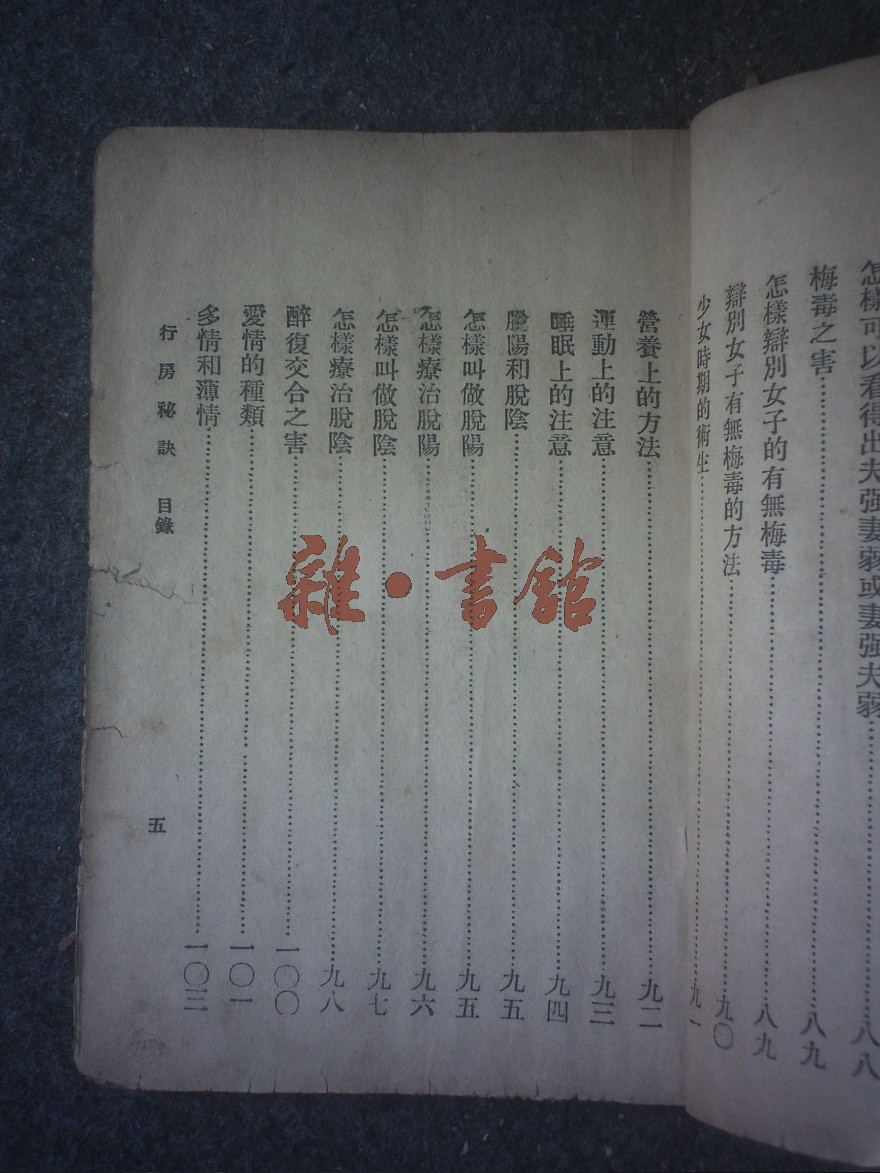 怎樣可以看得出夫强妻弱或妻强夫弱……八八
梅毒之害……八九
怎樣辯別女子的有無梅毒……八九
辯別女子有無梅毒的方法……九〇
少女時期的衛生……九一
營養上的方法……九二
運動上的注意……九三
睡眠上的注意……九四
脫陽和脫陰……九五
怎樣叫做脫陽……九五
怎樣療治脫陽……九六
怎樣叫做脫陰……九七
怎樣療治脫陰……九八
醉復交合之害……一〇〇
愛情的種類……一〇一
多情和薄情……一〇三
行房秘訣 目錄 五
雜·書館